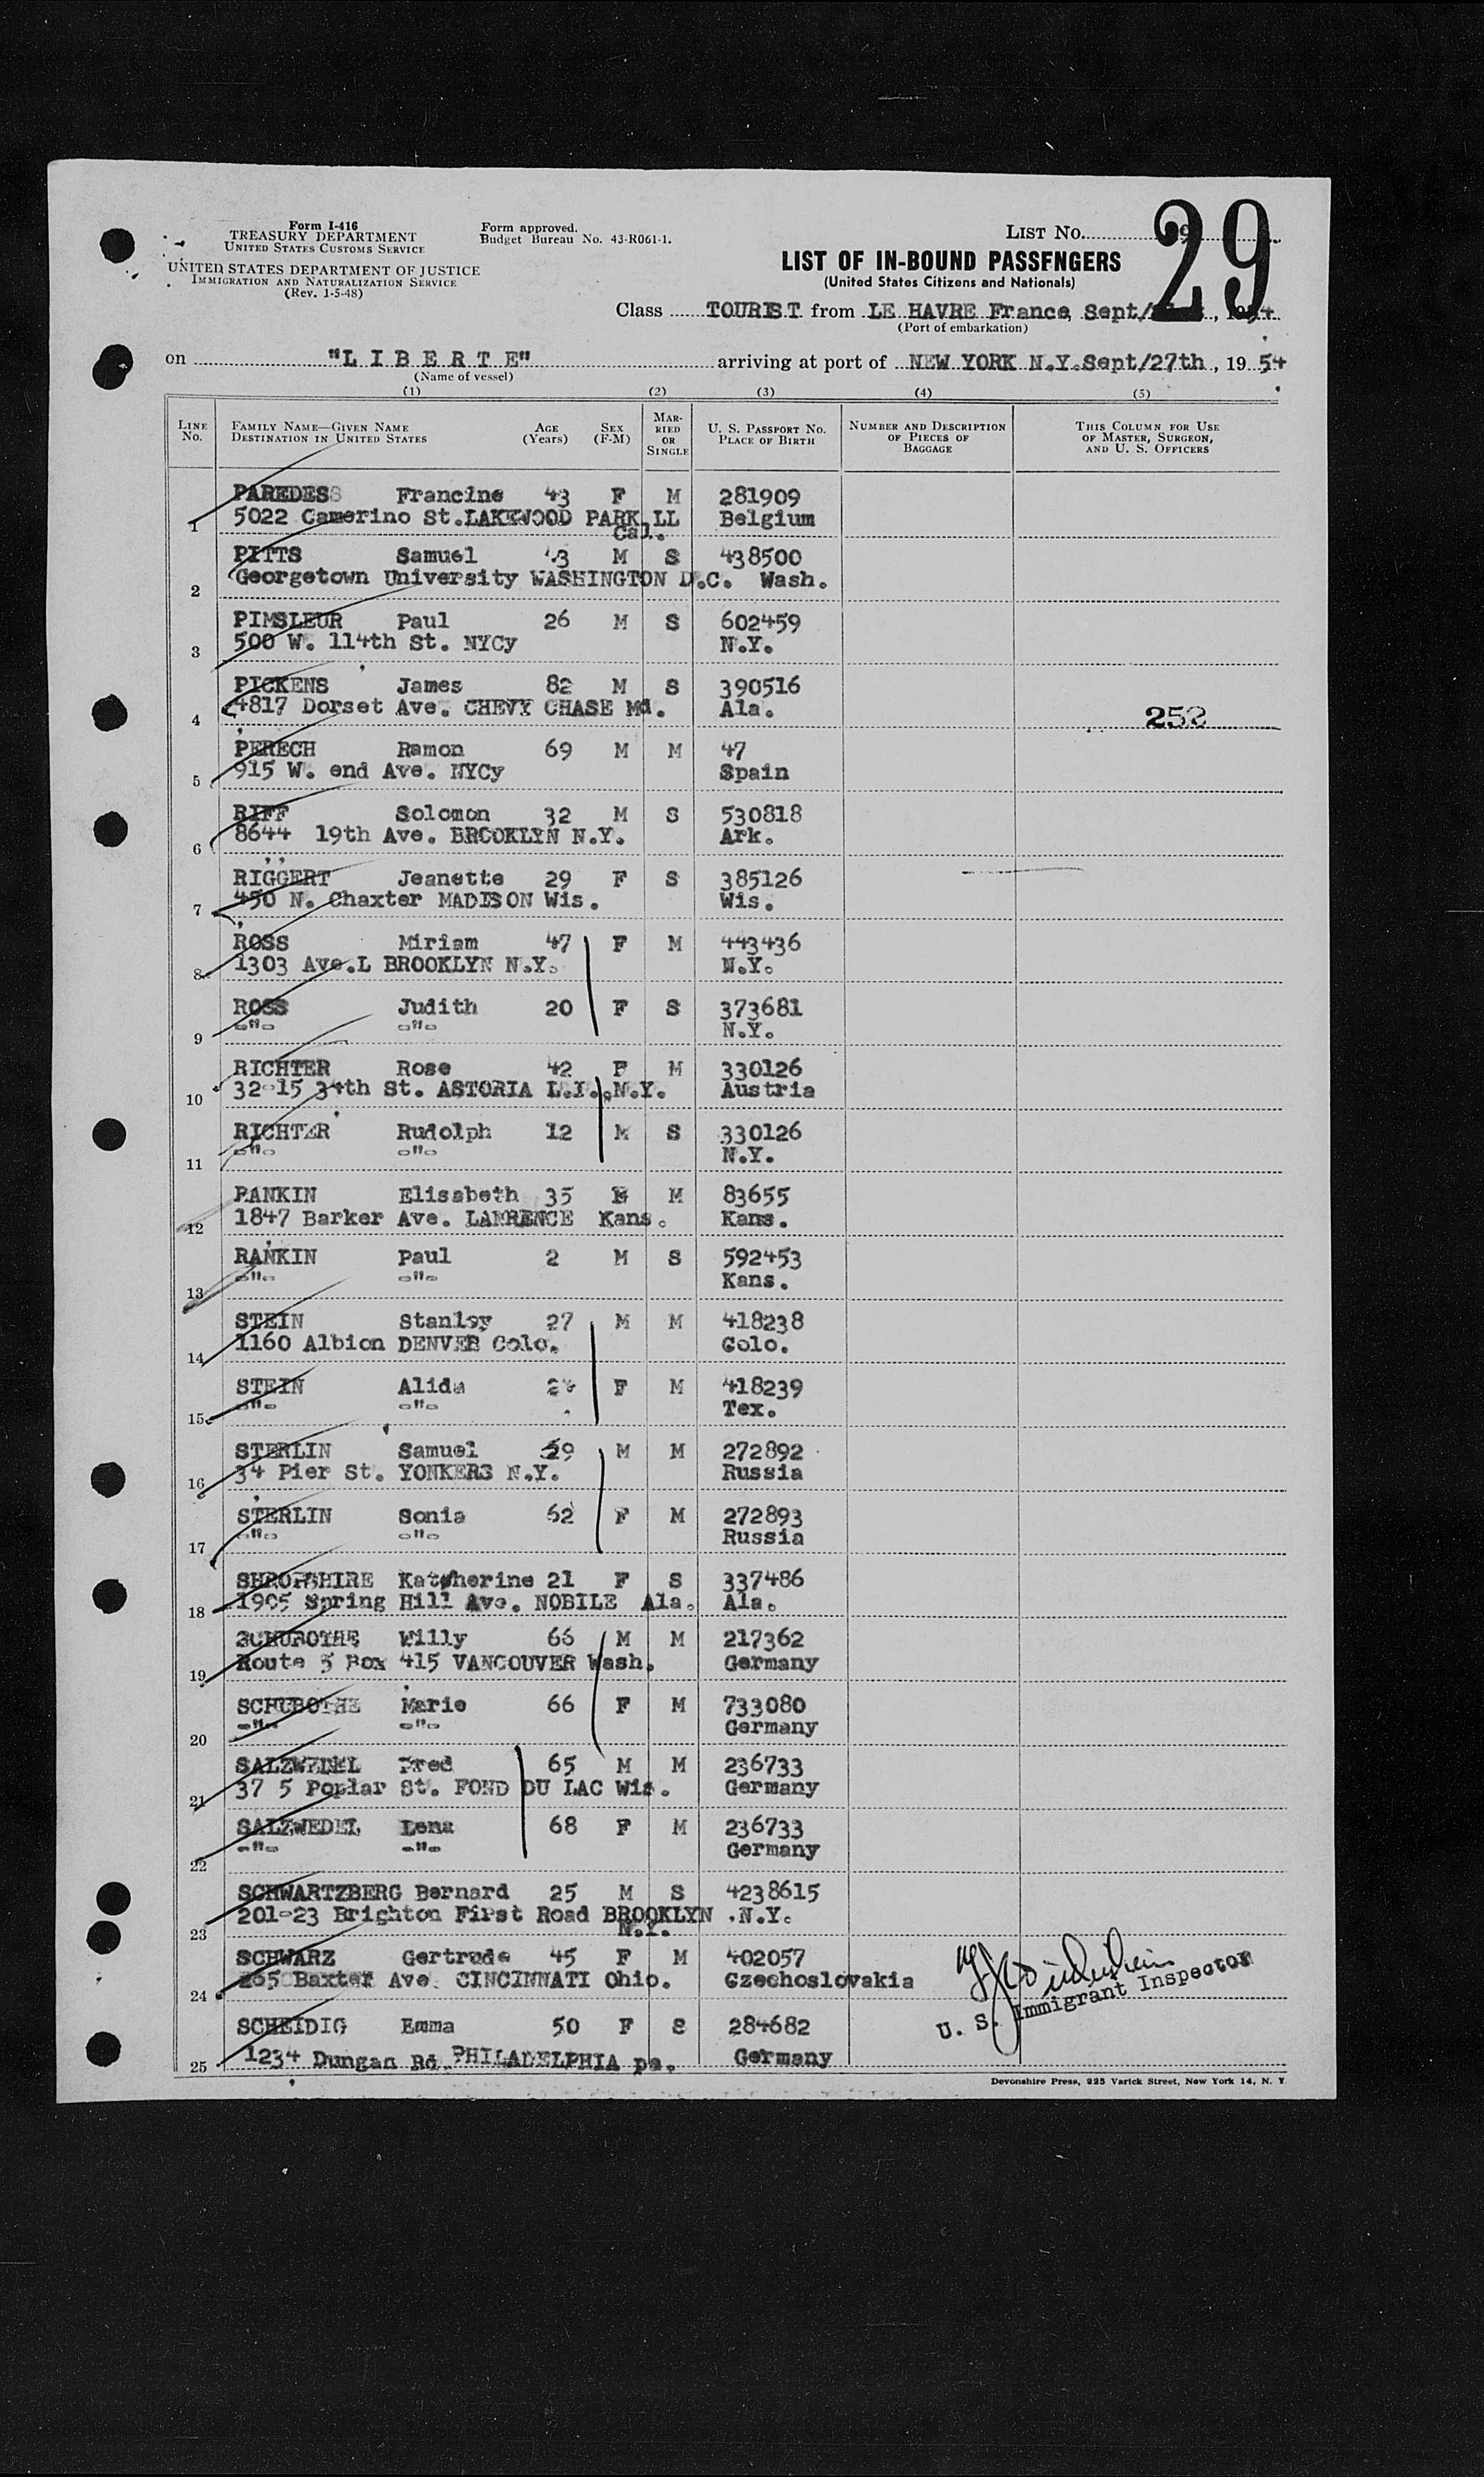 Form I-416
TREASURY DEPARTMENT
UNITED STATES CUSTOMS SERVICE
UNITED STATES DEPARTMENT OF JUSTICE
IMMIGRATION AND NATURALIZATION SERVICE
(Rev. 1-5-48)
Form approved.
Budget Bureau No. 43-R061-1.
LIST No.
29
LIST OF IN-BOUND PASSENGERS
(United States Citizens and Nationals)
Class TOURIST from LE HAVRE France, Sept/ , 1954
(Port of embarkation)
on "LIBERTE" arriving at port of NEW YORK N.Y. Sept/27th, 1954
(Name of vessel)
(1) (2) (3) (4) (5)
LINE No. FAMILY NAME—GIVEN NAME DESTINATION IN UNITED STATES AGE (Years) SEX (F-M) MARRIED OR SINGLE U. S. PASSPORT No. PLACE OF BIRTH NUMBER AND DESCRIPTION OF PIECES OF BAGGAGE THIS COLUMN FOR USE OF MASTER, SURGEON, AND U. S. OFFICERS
PAREDES Francine 43 F M 281909
1 5022 Camerino St. LAKEWOOD PARK Belgium
Cal.
PITTS Samuel M S 438500
2 Georgetown University WASHINGTON D.C. Wash.
PIMSLEUR Paul 26 M S 602459
3 500 W. 114th St. NYCy N.Y.
PICKENS James 82 M S 390516
4 4817 Dorset Ave. CHEVY CHASE Md. Ala. 252
PERECH Ramon 69 M M 47
5 915 W. end Ave. NYCy Spain
RIFF Solomon 32 M S 530818
6 8644 19th Ave. BROOKLYN N.Y. Ark.
RIGGERT Jeanette 29 F S 385126
7 450 N. Chaxter MADISON Wis. Wis.
ROSS Miriam 47 F M 443436
8 1303 Ave.L BROOKLYN N.Y. N.Y.
ROSS Judith 20 F S 373681
9 -"- -"- N.Y.
RICHTER Rose 42 F M 330126
10 32-15 34th St. ASTORIA L.I. N.Y. Austria
RICHTER Rudolph 12 M S 330126
11 -"- -"- N.Y.
RANKIN Elisabeth 35 F M 83655
12 1847 Barker Ave. LAWRENCE Kans. Kans.
RANKIN Paul 2 M S 592453
13 -"- -"- Kans.
STEIN Stanley 27 M M 418238
14 1160 Albion DENVER Colo. Colo.
STEIN Alida F M 418239
15 -"- -"- Tex.
STERLIN Samuel 59 M M 272892
16 34 Pier St. YONKERS N.Y. Russia
STERLIN Sonia 62 F M 272893
17 -"- -"- Russia
SHROPSHIRE Katherine 21 F S 337486
18 1905 Spring Hill Ave. NOBILE Ala. Ala.
SCHUBOTHE Willy 66 M M 217362
19 Route 5 Box 415 VANCOUVER Wash. Germany
SCHUBOTHE Marie 66 F M 733080
20 -"- -"- Germany
SALZWEDEL Fred 65 M M 236733
21 37 5 Poplar St. FOND DU LAC Wis. Germany
SALZWEDEL Lena 68 F M 236733
22 -"- -"- Germany
SCHWARTZBERG Bernard 25 M S 4238615
23 201-23 Brighton First Road BROOKLYN N.Y.
N.Y.
SCHWARZ Gertrude 45 F M 402057
24 265 Baxter Ave CINCINNATI Ohio. Czechoslovakia
SCHEIDIG Emma 50 F S 284682
25 1234 Dungan Rd. PHILADELPHIA pa. Germany
U. S. Immigrant Inspector
Devonshire Press, 225 Varick Street, New York 14, N. Y.